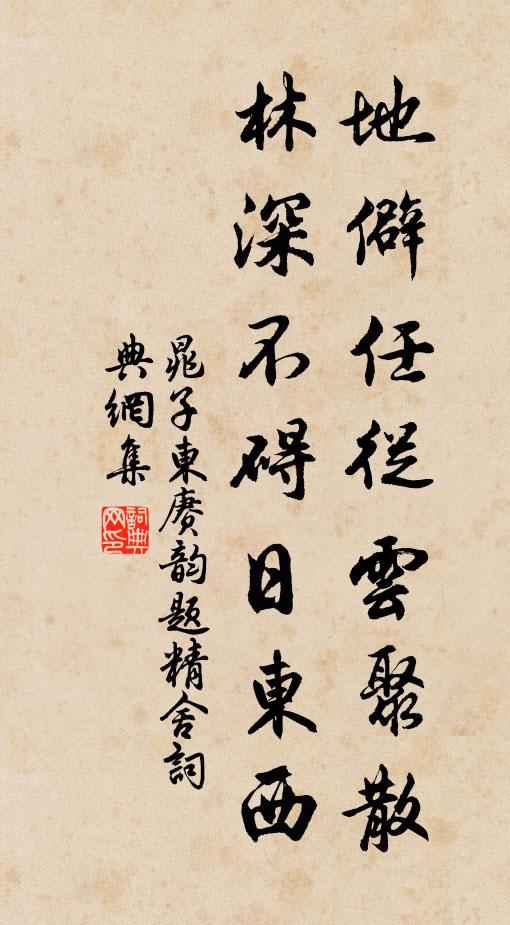 地僻任從雲聚散
林深不碍日東西
晁子東赓韵题精舍詞
典網集
詞典網印